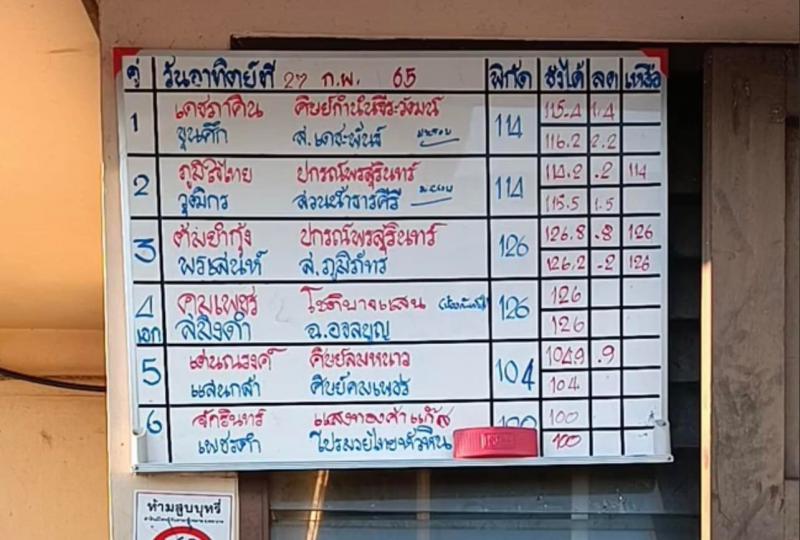 คู่ วันอาทิตย์ที่ 27 ก.พ. 65 พิกัด ชั่งได้ ลด เหลือ
1 เดชภาคิน ศิษย์กำนันธีระวัฒน์ 114 115.4 1.4
ขุนศึก ส.เดชะพันธ์ 116.2 2.2
2 ภูมิใจไทย ปกรณ์พรสุรินทร์ 114 114.2 .2 114
วุฒิกร สวนน้ำธารคีรี 115.5 1.5
3 ต้มยำกุ้ง ปกรณ์พรสุรินทร์ 126 126.8 .8 126
พระเสน่ห์ ส.ภูมิภัทร 126.2 .2 126
4 คมเพชร โชติบางแสน 126 126
เอก สมิงดำ ฉ.อจลบุญ 126
5 เด่นณรงค์ ศิษย์ลมหนาว 104 104.9 .9
แสนกล้า ศิษย์คมเพชร 104
6 จักรินทร์ แสงทองค้าแก๊ส 100 100
เพชรดำ โปรมวยไทยหัวหิน 100
ห้ามสูบบุหรี่